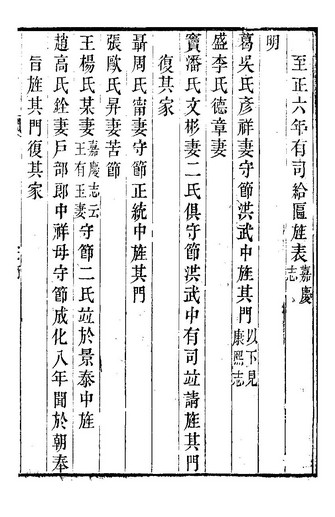 至正六年有司給匾旌表嘉慶志
明
葛吳氏彥祥妻守節洪武中旌其門以下見康熙志
盛李氏德章妻
竇潘氏文彬妻二氏俱守節洪武中有司竝請旌其門
復其家
聶周氏甯妻守節正統中旌其門
張歐氏昇妻苦節
王楊氏某妻嘉慶志云王有玉妻守節二氏竝於景泰中旌
趙高氏銓妻戸部郎中祥母守節成化八年聞於朝奉
旨旌其門復其家